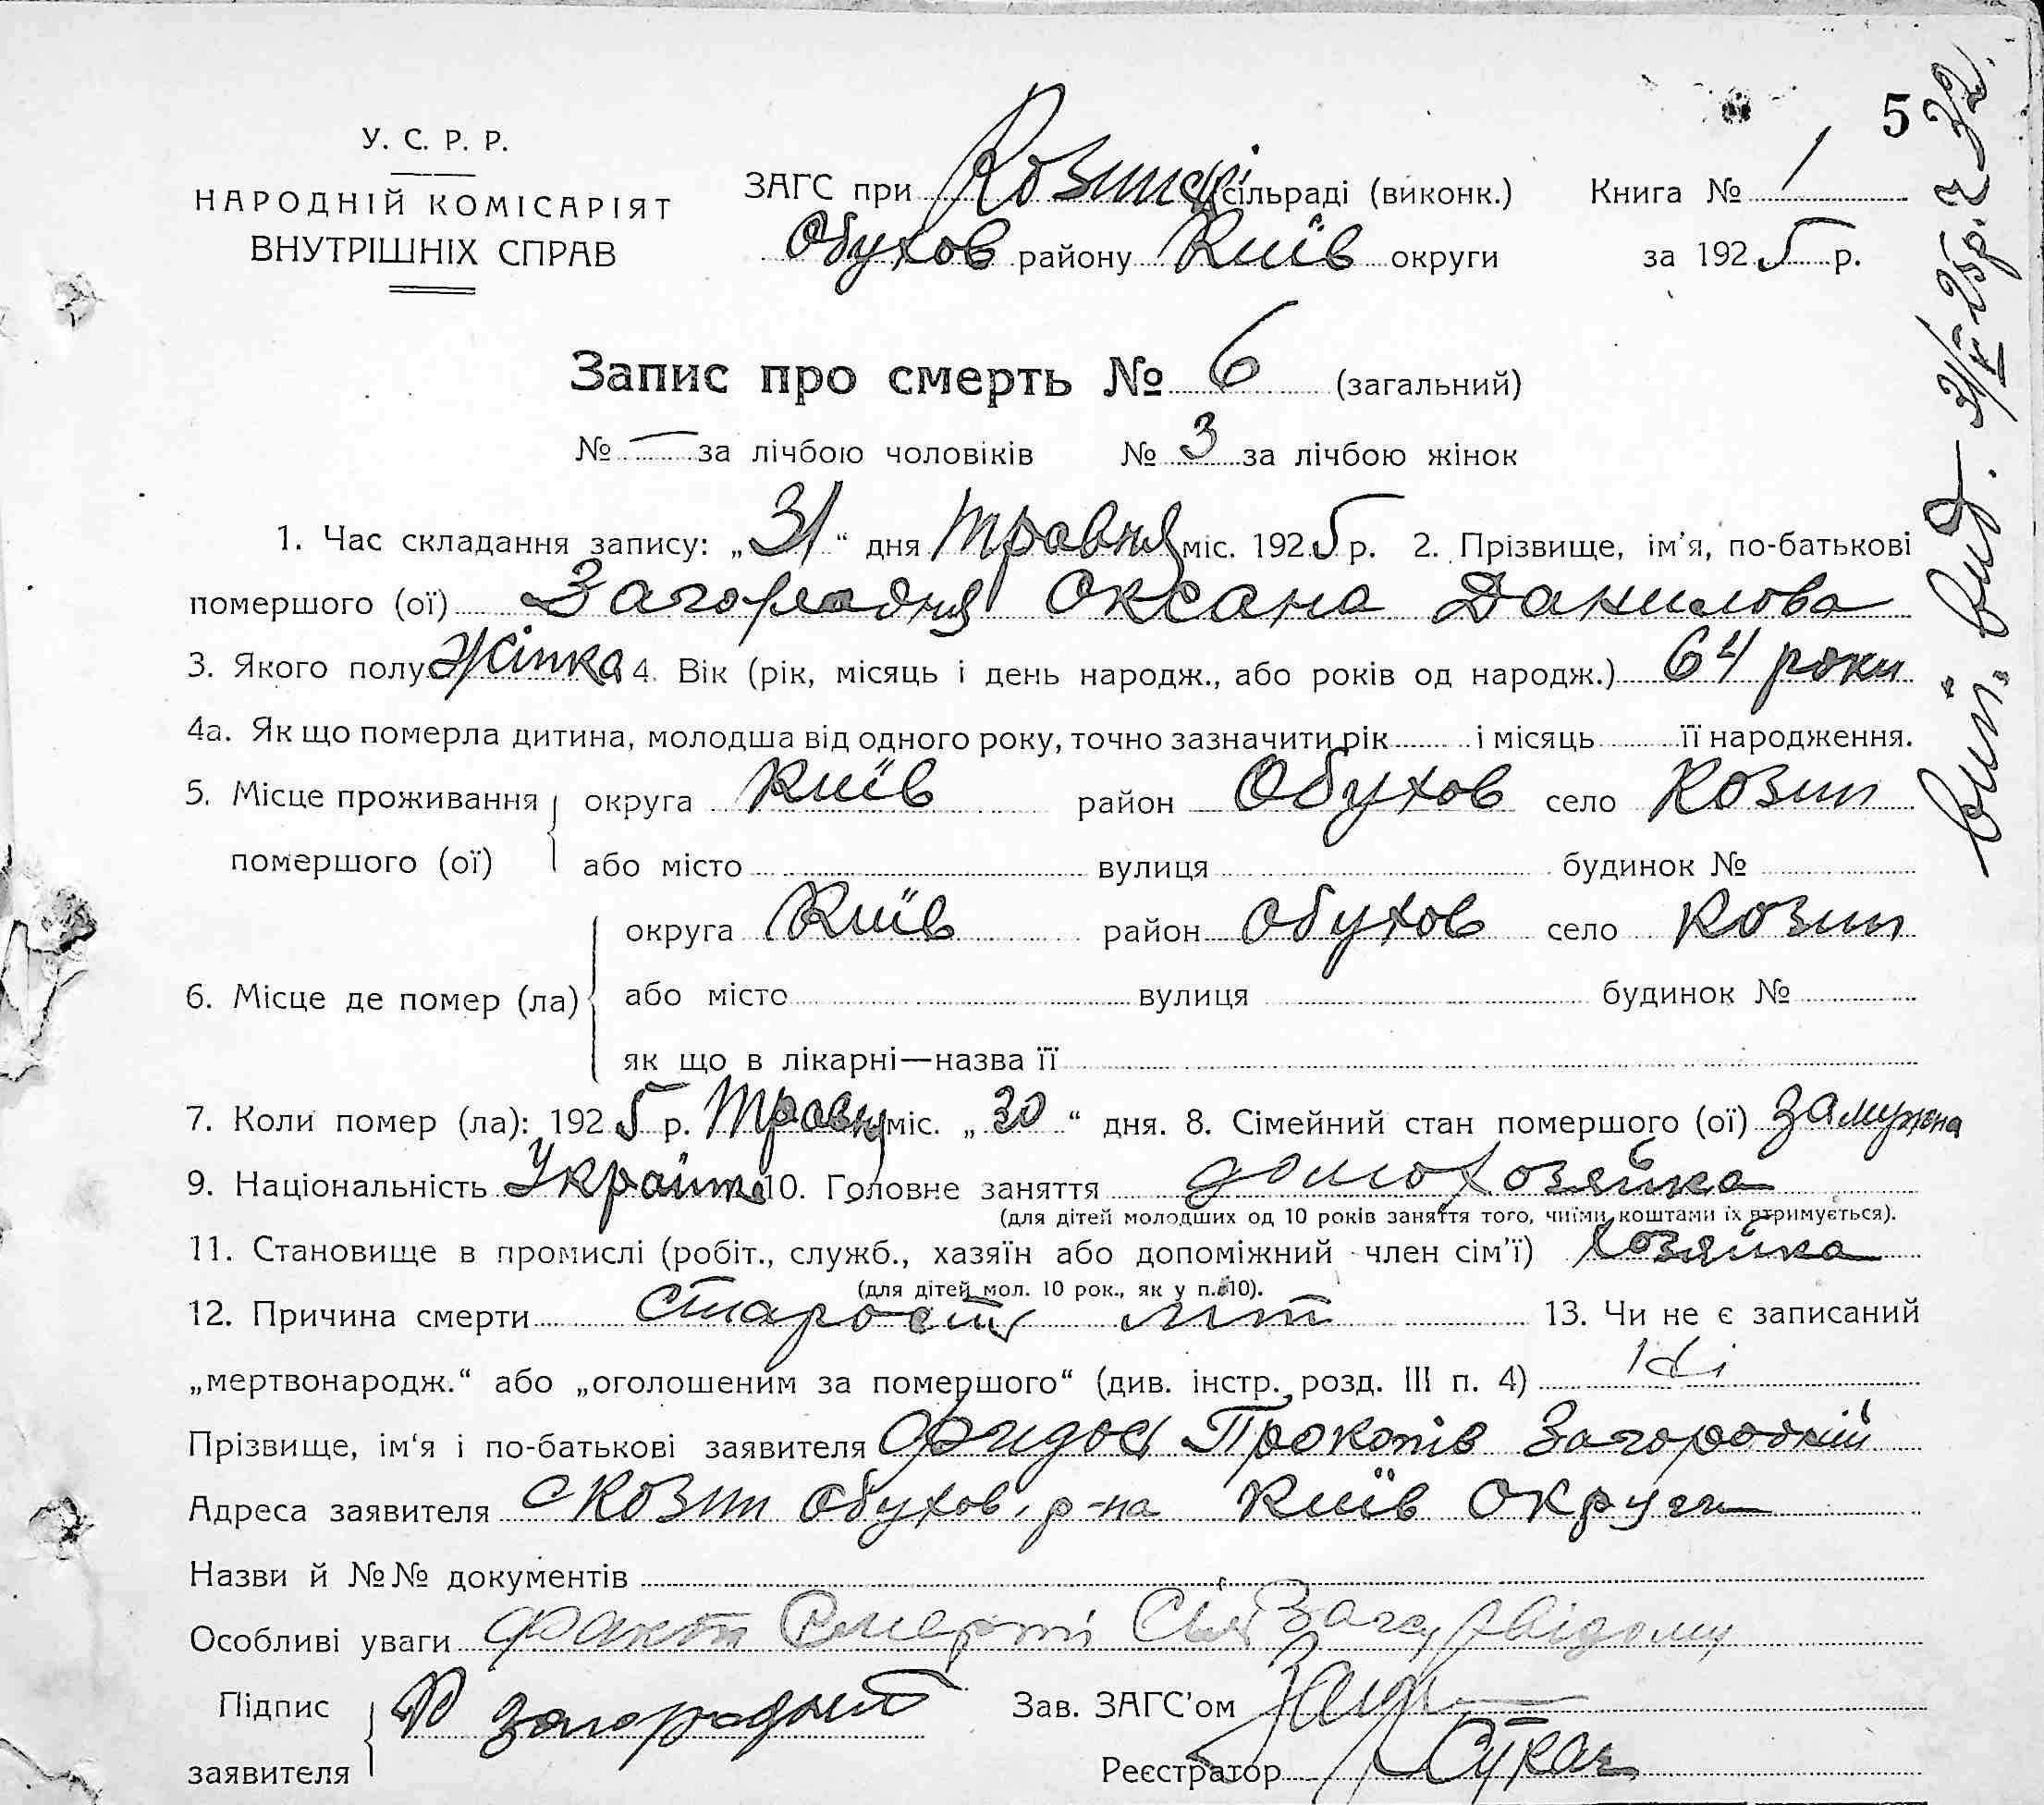 5
У. С. Р. Р.
НАРОДНІЙ КОМІСАРІЯТ
ВНУТРІШНІХ СПРАВ
ЗАГС при Козинскі сільраді (виконк.) Книга № 1
Обухов району Київ округи за 1925 р.
Запис про смерть № 6 (загальний)
№ — за лічбою чоловіків № 3 за лічбою жінок
1. Час складання запису: „31“ дня Травня міс. 1925 р. 2. Прізвище, ім'я, по-батькові
помершого (ої) Загородня Оксана Данилова
3. Якого полу Жінка 4. Вік (рік, місяць і день народж., або років од народж.) 64 роки
4а. Як що померла дитина, молодша від одного року, точно зазначити рік і місяць її народження.
5. Місце проживання округа Київ район Обухов село Козин
помершого (ої) або місто вулиця будинок №
округа Київ район Обухов село Козин
6. Місце де помер (ла) або місто вулиця будинок №
як що в лікарні—назва її
7. Коли помер (ла): 1925 р. Травня міс. „30“ дня. 8. Сімейний стан помершого (ої) замужна
9. Національність Україн 10. Головне заняття домохозяйка
(для дітей молодших од 10 років заняття того, чиїми коштами їх втримується).
11. Становище в промислі (робіт., служб., хазяїн або допоміжний член сім'ї) хозяйка
(для дітей мол. 10 рок., як у п. 10).
12. Причина смерти старость літ 13. Чи не є записаний
„мертвонародж.“ або „оголошеним за помершого“ (див. інстр. розд. III п. 4) Ні
Прізвище, ім'я і по-батькові заявителя Прокопів Загородній
Адреса заявителя с Козин Обухов. р-на Київ округи
Назви й №№ документів
Особливі уваги Факт смерті Загсу відому
Підпис Загородній Зав. ЗАГС'ом
заявителя Реєстратор Сукач
вид. 31/V 25р. 32.